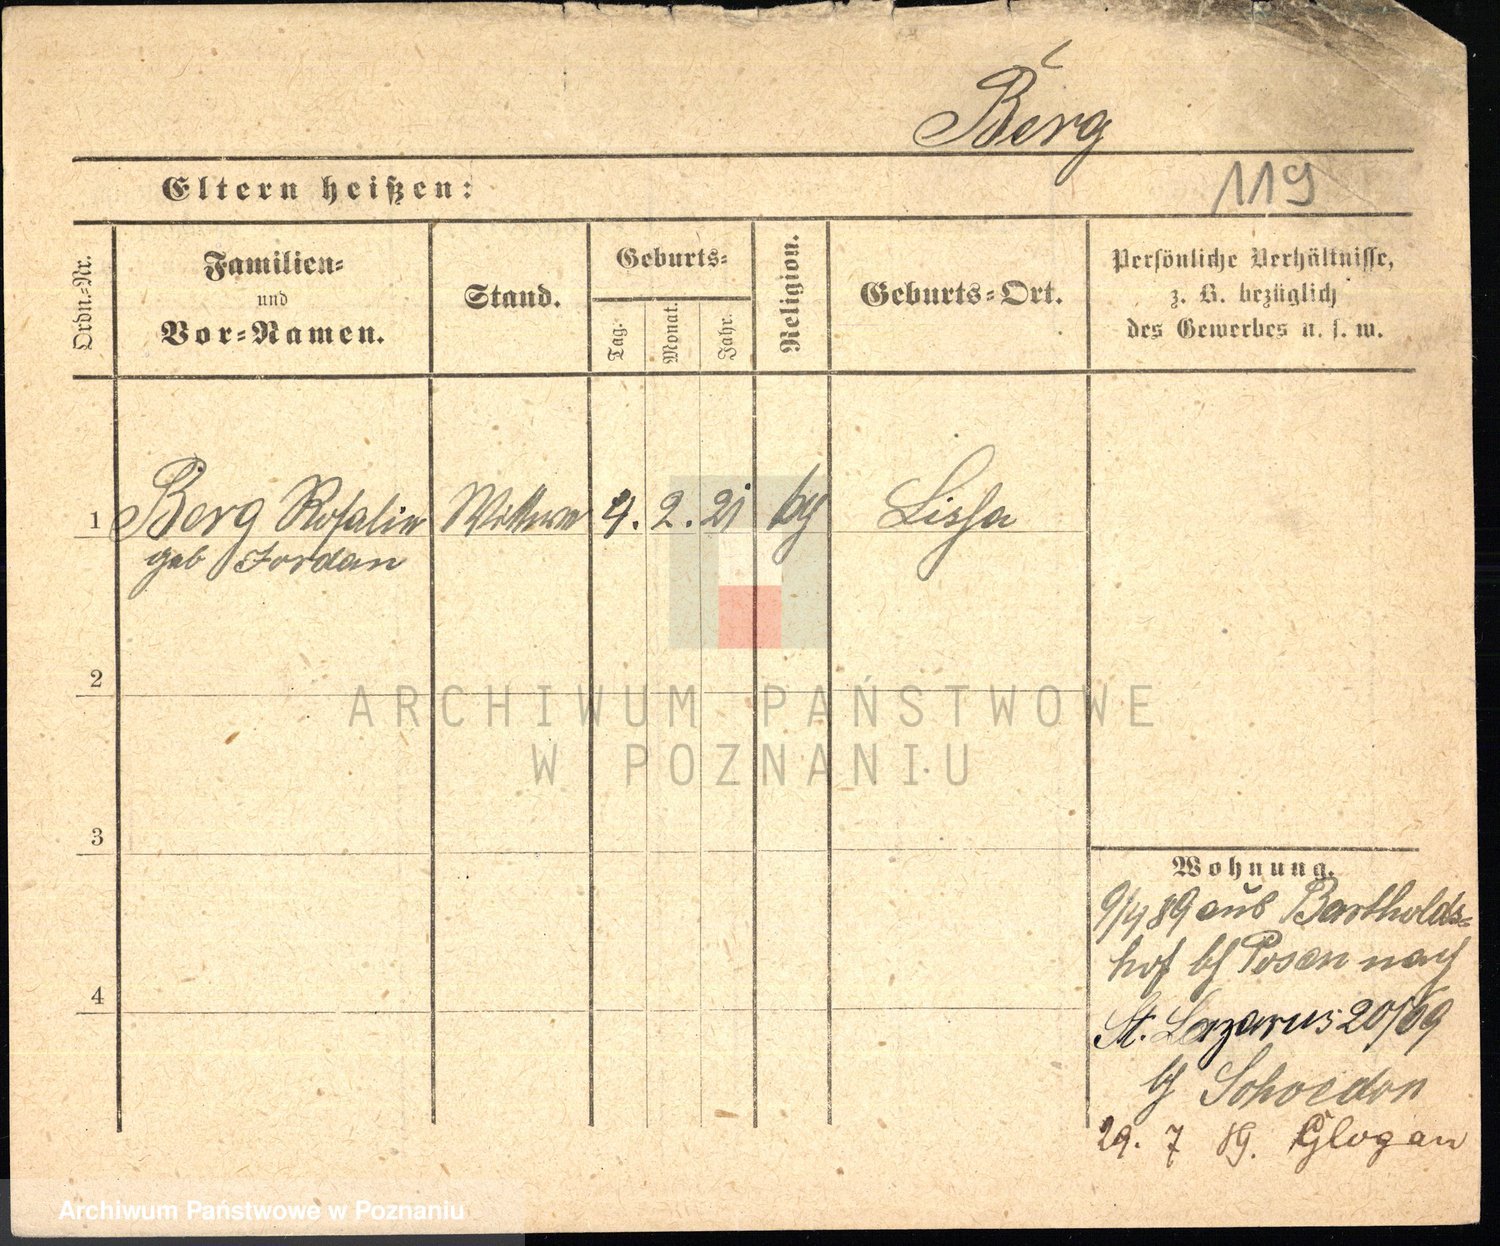 Berg
Eltern heißen:
119
Ordn.-Nr.
Familien-
und
Vor-Namen.
Stand.
Geburts-
Tag.
Monat.
Jahr.
Religion.
Geburts-Ort.
Persönliche Verhältnisse,
z. B. bezüglich
des Gewerbes u. s. w.
1
Berg Rosalie Wittwe 4. 2. 21 Lissa
geb Jordan
2
3
4
Wohnung.
9/4 89 aus Bartholds-
hof bei Posen nach
St. Lazarus 20/69
bei Schoedon
29. 7 89. Glogau
ARCHIWUM PAŃSTWOWE
W POZNANIU
Archiwum Państwowe w Poznaniu